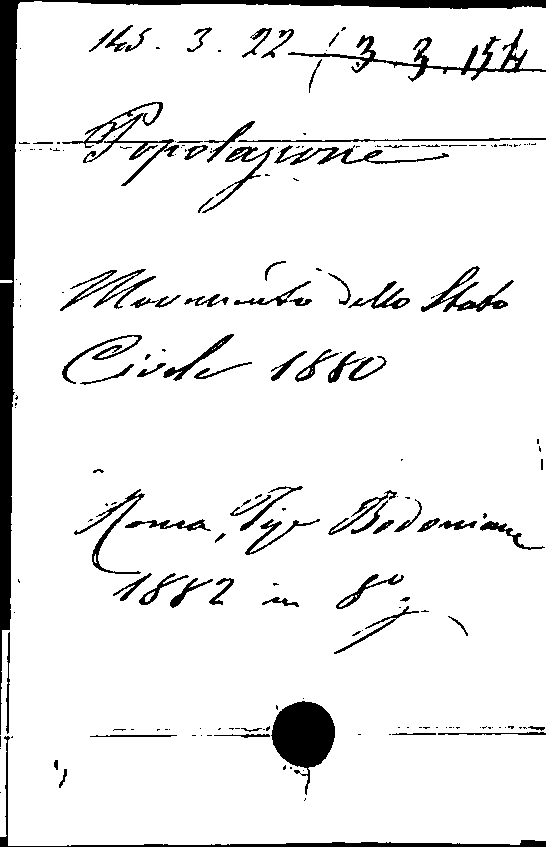 145. 3. 22 (3. 3. 154
Popolazione
Movimento dello Stato
Civile 1880
Roma, Tip Bodoniana
1882 in 8º